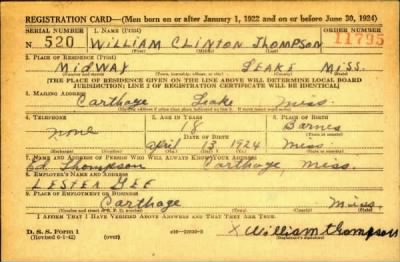 REGISTRATION CARD—(Men born on or after January 1, 1922 and on or before June 30, 1924)
SERIAL NUMBER 1. NAME (Print) ORDER NUMBER
N 520 WILLIAM CLINTON THOMPSON 11795
(First) (Middle) (Last)
2. PLACE OF RESIDENCE (Print)
MIDWAY LEAKE MISS.
(Number and street) (Town, township, village, or city) (County) (State)
[THE PLACE OF RESIDENCE GIVEN ON THE LINE ABOVE WILL DETERMINE LOCAL BOARD
JURISDICTION; LINE 2 OF REGISTRATION CERTIFICATE WILL BE IDENTICAL]
3. MAILING ADDRESS
Carthage Leake Miss.
[Mailing address if other than place indicated on line 2. If same insert word same]
4. TELEPHONE 5. AGE IN YEARS 6. PLACE OF BIRTH
none 18 Barnes
DATE OF BIRTH
April 13 1924 Miss.
7. NAME AND ADDRESS OF PERSON WHO WILL ALWAYS KNOW YOUR ADDRESS
Ed Thompson Carthage, Miss.
8. EMPLOYER'S NAME AND ADDRESS
LESTER GEE
9. PLACE OF EMPLOYMENT OR BUSINESS
Carthage Miss
(Number and street or R. F. D. number) (Town) (County) (State)
I AFFIRM THAT I HAVE VERIFIED ABOVE ANSWERS AND THAT THEY ARE TRUE.
D. S. S. Form 1
(Revised 6-1-42) (over) X William Thompson
(Registrant's signature)